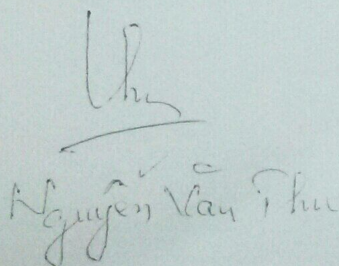 Nguyễn Văn Thu